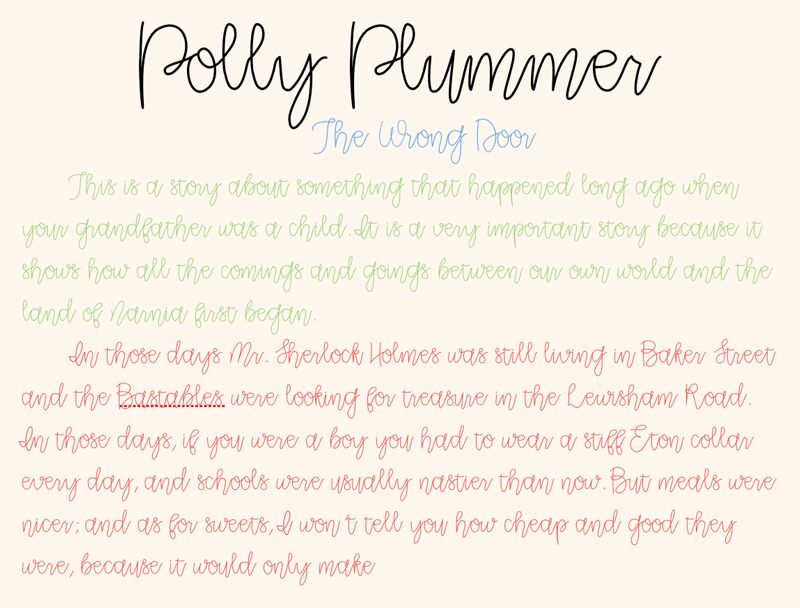 Polly Plummer
The Wrong Door
This is a story about something that happened long ago when
your grandfather was a child. It is a very important story because it
shows how all the comings and goings between our own world and the
land of Narnia first began.
In those days Mr. Sherlock Holmes was still living in Baker Street
and the Bastables were looking for treasure in the Lewisham Road.
In those days, if you were a boy you had to wear a stiff Eton collar
every day, and schools were usually nastier than now. But meals were
nicer; and as for sweets, I won't tell you how cheap and good they
were, because it would only make